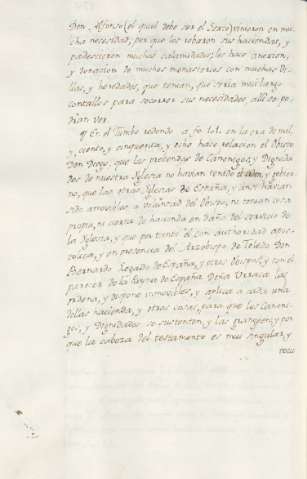 Don Alfonso (el qual debe ser el Sexto) vinieron en mu-
cha necesidad, por que les robaron sus haciendas, y
padescieron muchas calamidades; les hace anexion,
y donacion de muchos monasterios con muchas Vi-
llas, y heredades, que tenian, que sería mui largo
contallos para socorrer sus necesidades, alli se po-
drian ver.
El Tumbo redondo a fo. 101. en la era de mil,
y ciento, y cinquenta, y ocho hace relacion el Obispo
Don Diego, que las prebendas de Canongias, y Dignida-
des de nuestra Iglesia no havian tenido el orden, y gobier-
no, que las otras Iglesias de España, y que havian
sido amovibles a voluntad del Obispo, ni tenian cosa
propia, ni cierta de hacienda en daño del servicio de
la Iglesia, y que por tanto el con authoridad apos-
tolica, y en presencia del Arzobispo de Toledo Don
Bernardo Legado de España, y otros Obispos, y con el
parecer de la Reyna de España Doña Urraca las
ordena, y dispone inmobiles, y aplica a cada una
dellas hacienda, y otras cosas, para que los Canoni-
gos, y Dignidades se sustenten, y las grangeen; y por
que la cabeza del testamento es mui singular, y